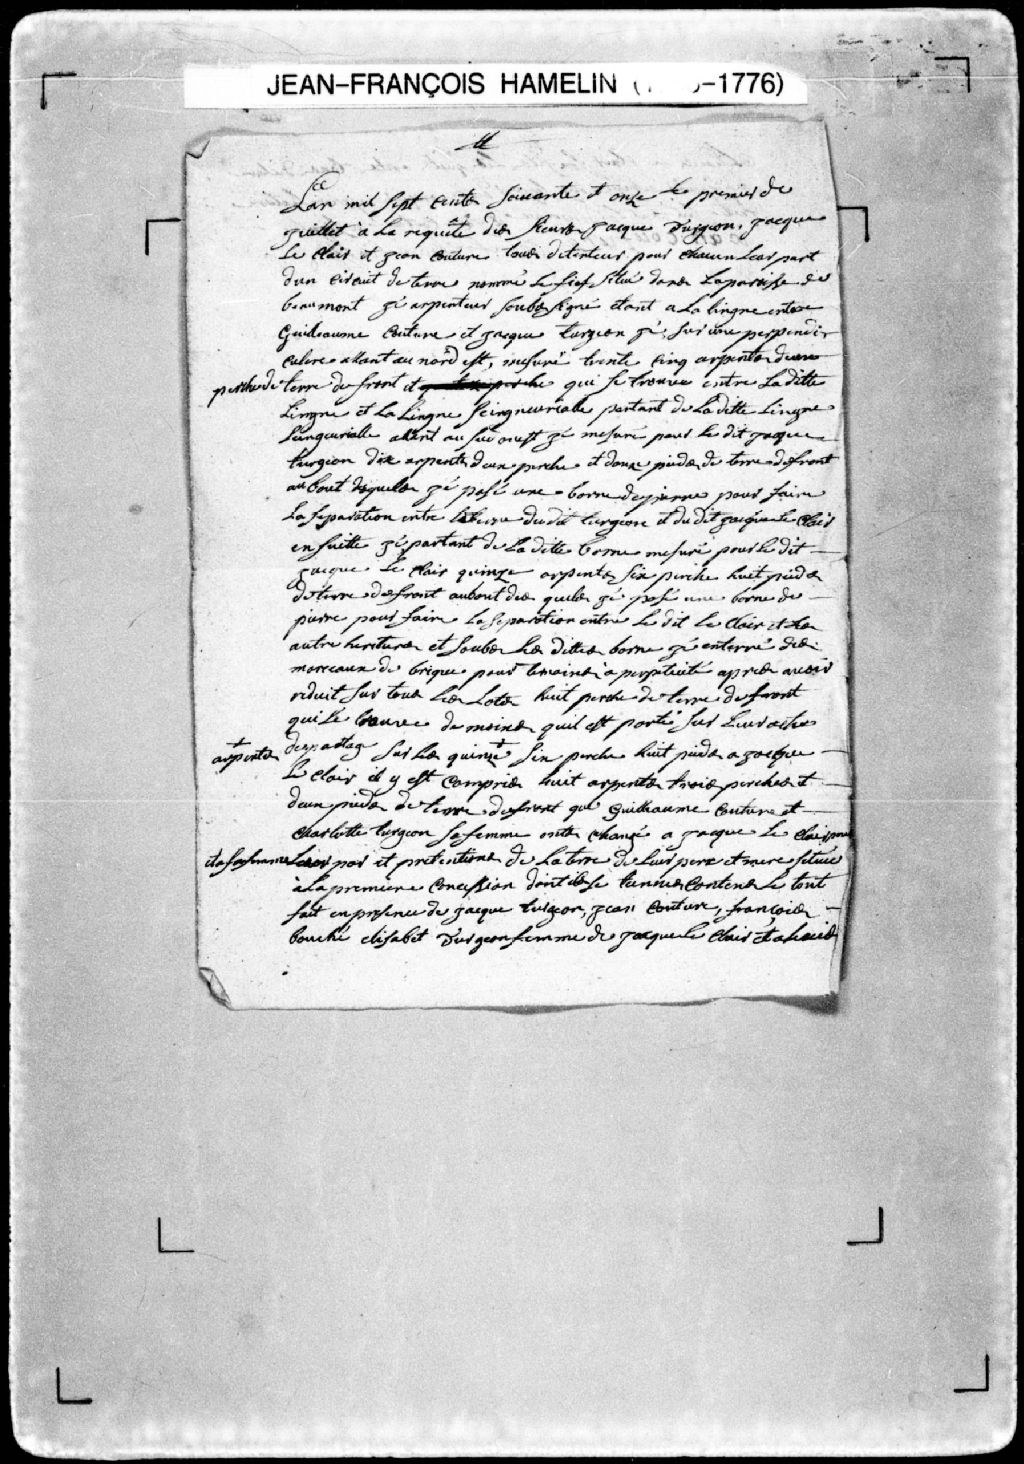 JEAN-FRANÇOIS HAMELIN ( -1776)
Lan mil sept cents soixante et onze le premier de
juillet a La requête des sieurs jacque Turgeon, jacque
Le Clair et jean Couture tous detenteur pour chacun Leur part
dun circuit de terre nommé Le fief situé dans Laparoisse de
beaumont jé arpenteur soubsigné étant a La lingne entre
Guilleaume Couture et jacque turgeon jé, sur une perpendi
culere allant au nord est, mesuré trente cinq arpents deux
perche de terre de front et perche qui se trouve entre La ditte
Lingne et La Lingne seingneurialle partant de La ditte Lingne
seingneurialle allant au sud ouest jé mesuré pour le dit jacque
turgeon dix arpents deux perche et douze pieds de terre de front
au bout desquels jé posé une borne de pierre pour faire
La separation entre la terre du dit turgeon et du dit jacque Le Clair
en suitte jé partant de La ditte borne mesuré pour Le dit
jacque Le Clair quinze arpents six perche huit pieds
de terre de front au bout des quels jé posé une borne de
pierre pour faire La separation entre Le dit Le Clair et Les
autre heritiers et soubs Les dittes borne jé enterré des
morceaux de brique pour temoins a perpetuité apres avoir
reduit sur tous Les Lots huit perche de terre de front
qui se trouve de moins quil est porté sur Leur actes
de partage sur Les quinze + six perche huit pieds a jacque
+ arpents
Le Clair il y est compris huit arpents trois perches et
deux pieds de terre de front que Guilleaume Couture et
Charlotte turgeon sa femme onts changé a jacque Le Clair pour
et sa femme Leurs par et pretentions de La terre de Leur pere et mere située
a La premiere Concession dont ils se tienne contens Le tout
fait en presence de jacque turgeon, jean Couture, françois
bouché elisabet Turgeon femme de jacque Le Clair et